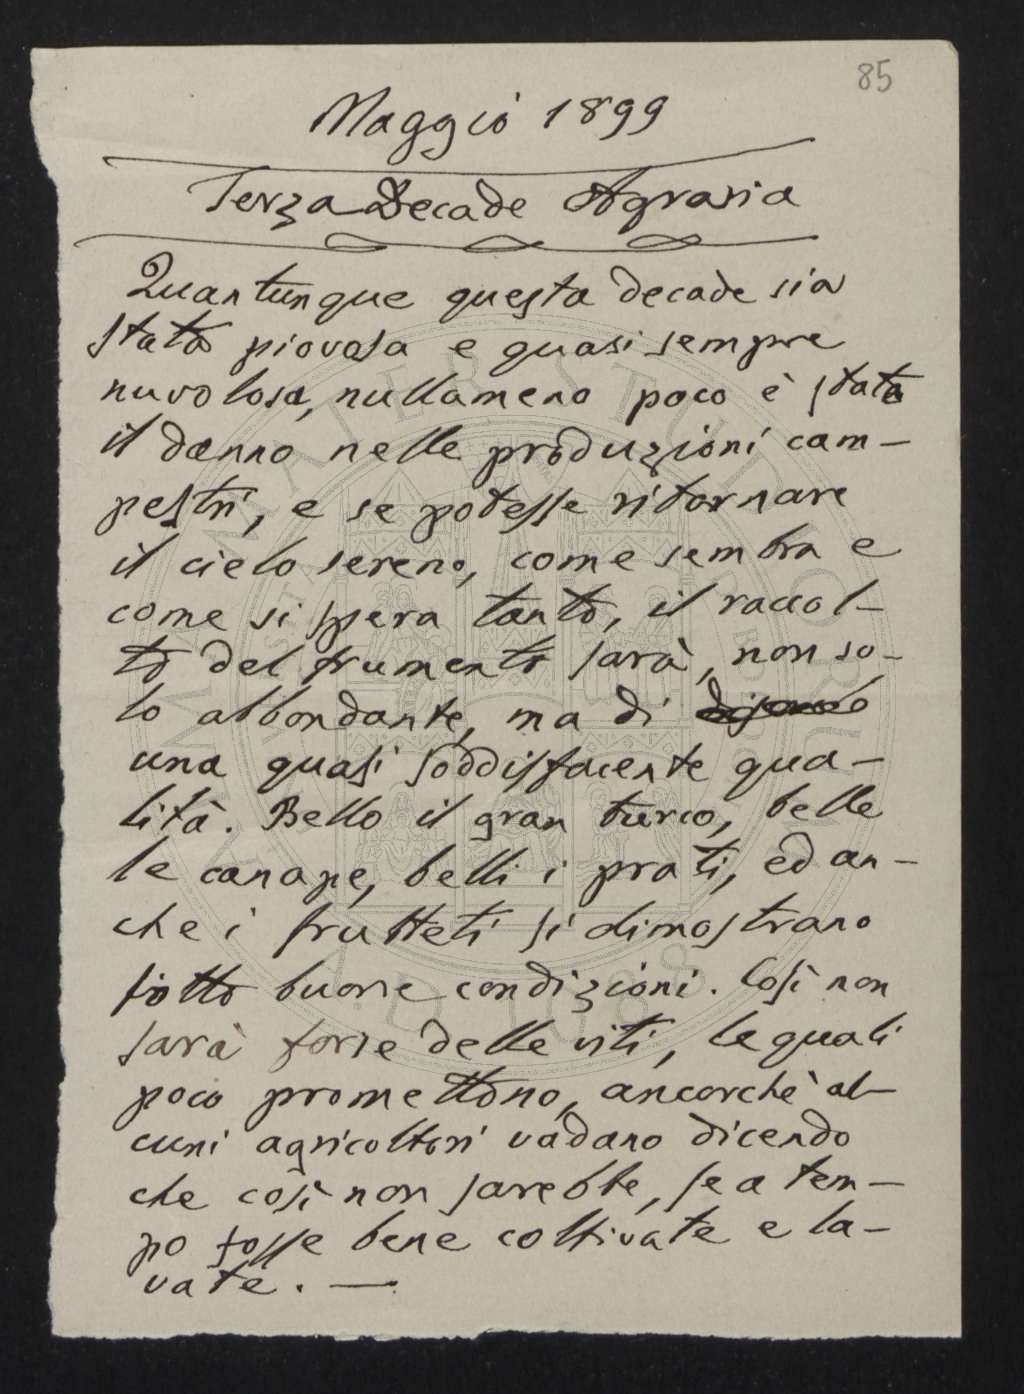 85
Maggio 1899
Terza Decade Agraria
Quantunque questa decade sia
stata piovosa e quasi sempre
nuvolosa, nullameno poco è stato
il danno nelle produzioni cam-
pestri, e se potesse ritornare
il cielo sereno, come sembra e
come si spera tanto, il raccol-
to del frumento sarà, non so-
lo abbondante, ma di
una quasi soddisfacente qua-
lità. Bello il gran turco, belle
le canape, belli i prati, ed an-
che i frutteti si dimostrano
sotto buone condizioni. Così non
sarà forse delle viti, le quali
poco promettono, ancorchè al-
cuni agricoltori vadano dicendo
che così non sarebbe, se a tem-
po fosse bene coltivate e la-
vate. —